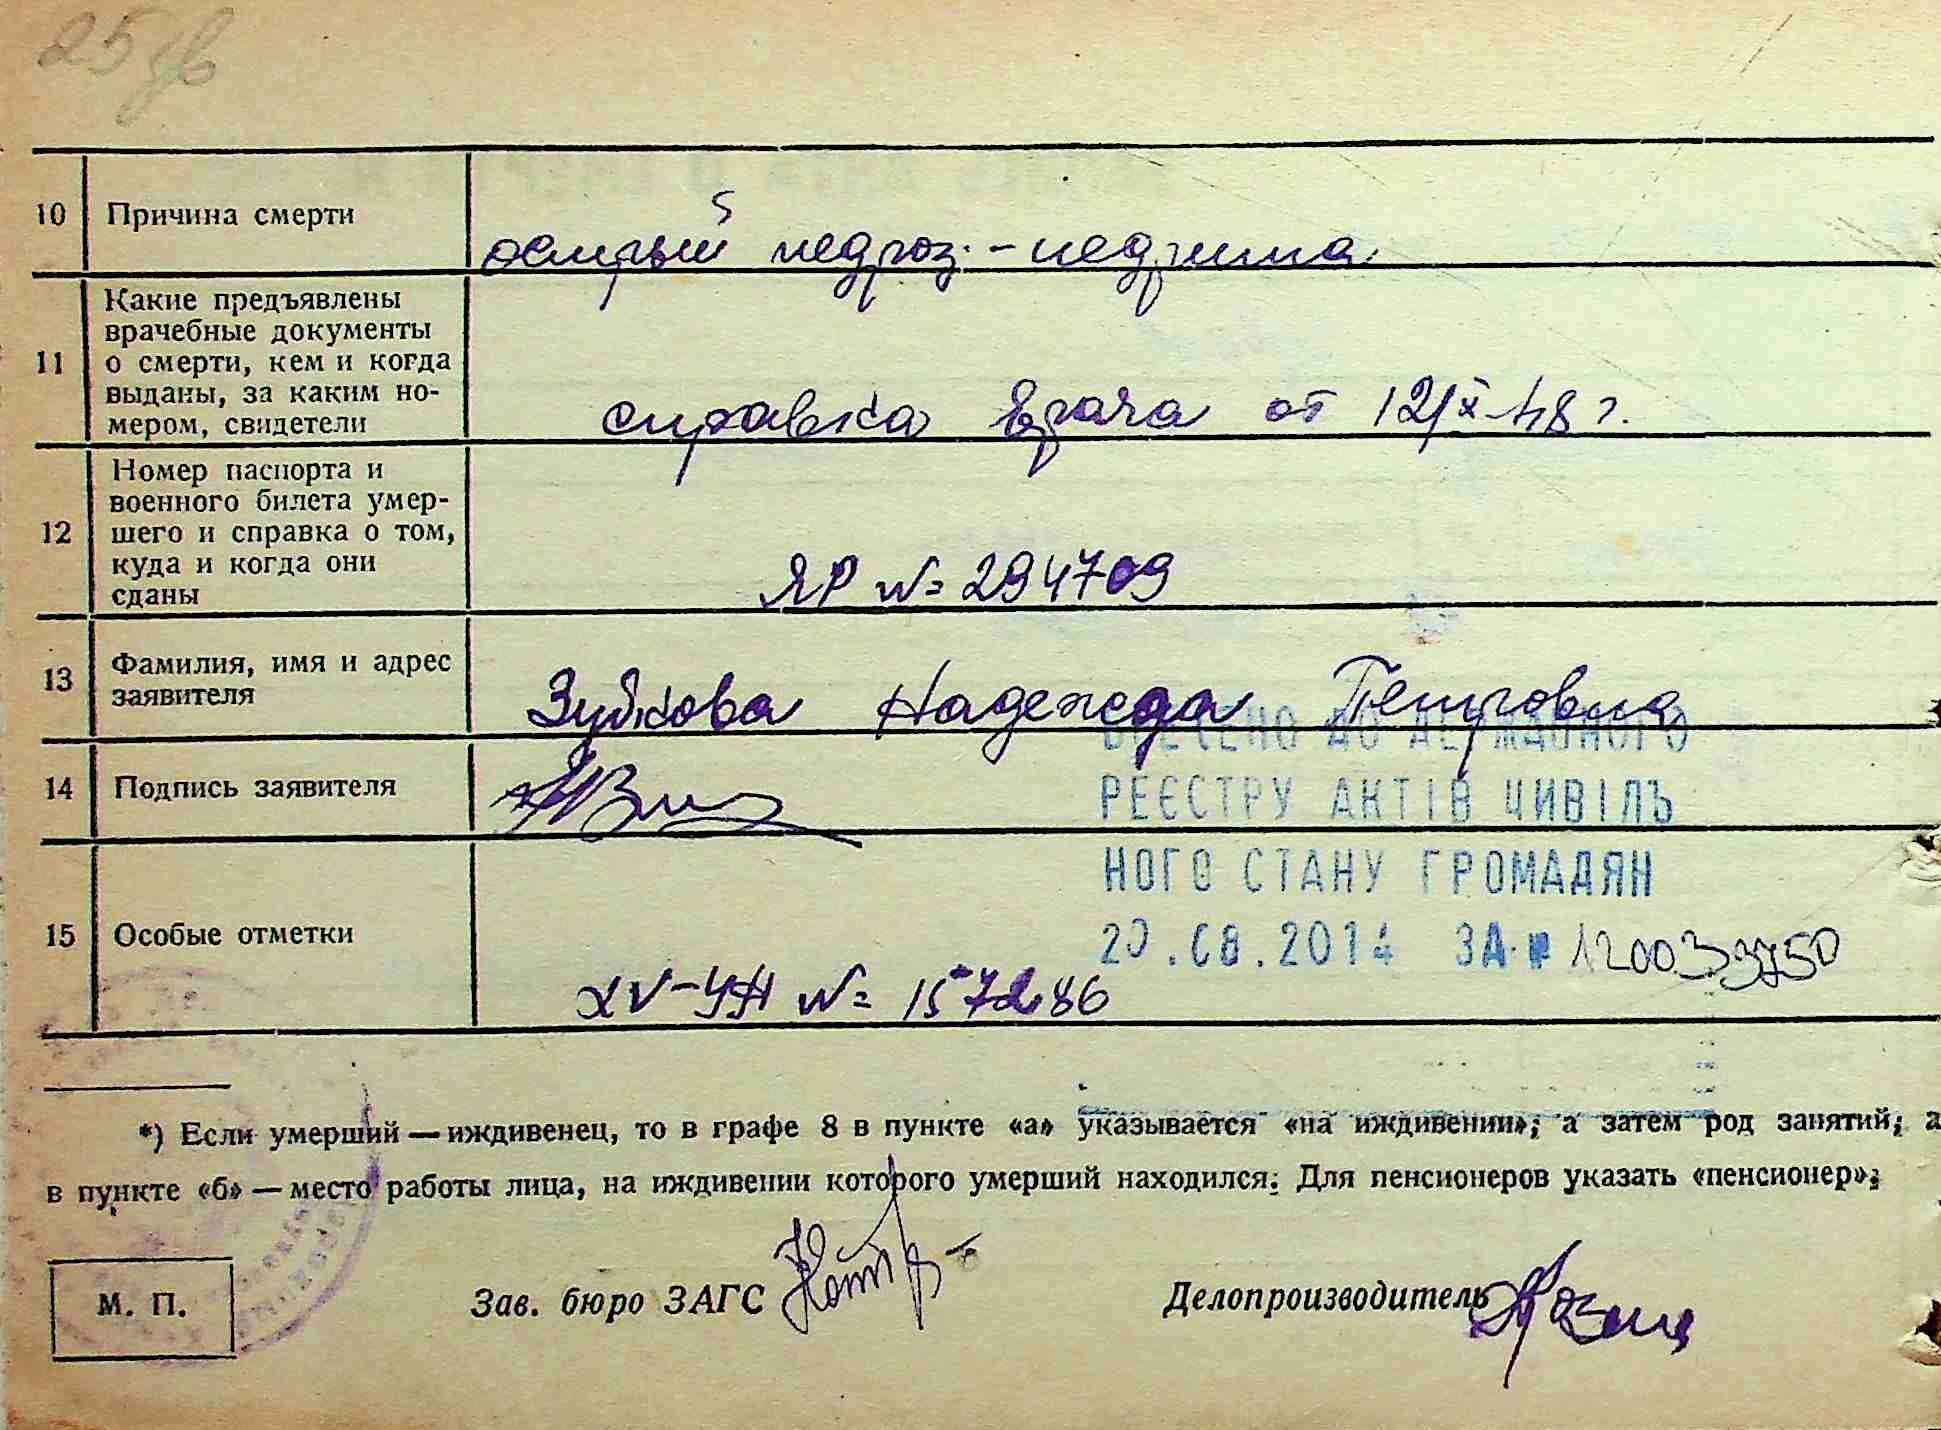 25
10 Причина смерти
острый
11 Какие предъявлены
врачебные документы
о смерти, кем и когда
выданы, за каким но-
мером, свидетели
справка врача от 12/X-48 г.
12 Номер паспорта и
военного билета умер-
шего и справка о том,
куда и когда они
сданы
ЯР № 294709
13 Фамилия, имя и адрес
заявителя
Зубкова Надежда Петровна
14 Подпись заявителя
15 Особые отметки
XV-УЯ № 157286
ВНЕСЕНО ДО ДЕРЖАВНОГО
РЕЄСТРУ АКТІВ ЦИВІЛЬ
НОГО СТАНУ ГРОМАДЯН
20.08.2014 ЗА № 120033750
*) Если умерший — иждивенец, то в графе 8 в пункте «а» указывается «на иждивении», а затем род занятий; а
в пункте «б» — место работы лица, на иждивении которого умерший находился. Для пенсионеров указать «пенсионер».
М. П.
Зав. бюро ЗАГС
Делопроизводитель